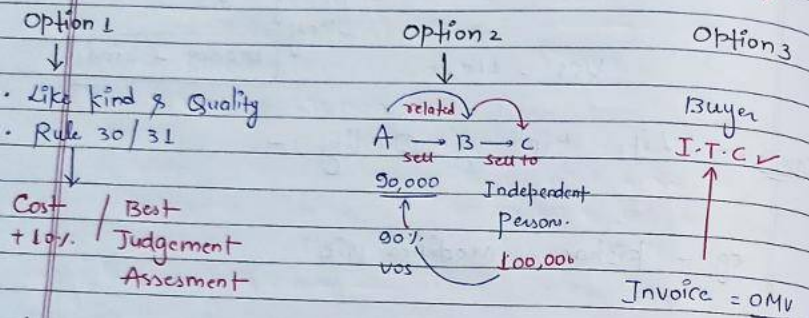 Option 1
↓
• Like kind & Quality
• Rule 30/31
↓
Cost / Best
+10% Judgement
Assesment
Option 2
↓
related
A → B → C
sell sell to
90,000 Independent
Person.
90%
vos 100,000
Option 3
Buyer
I.T.C ✓
Invoice = OMV